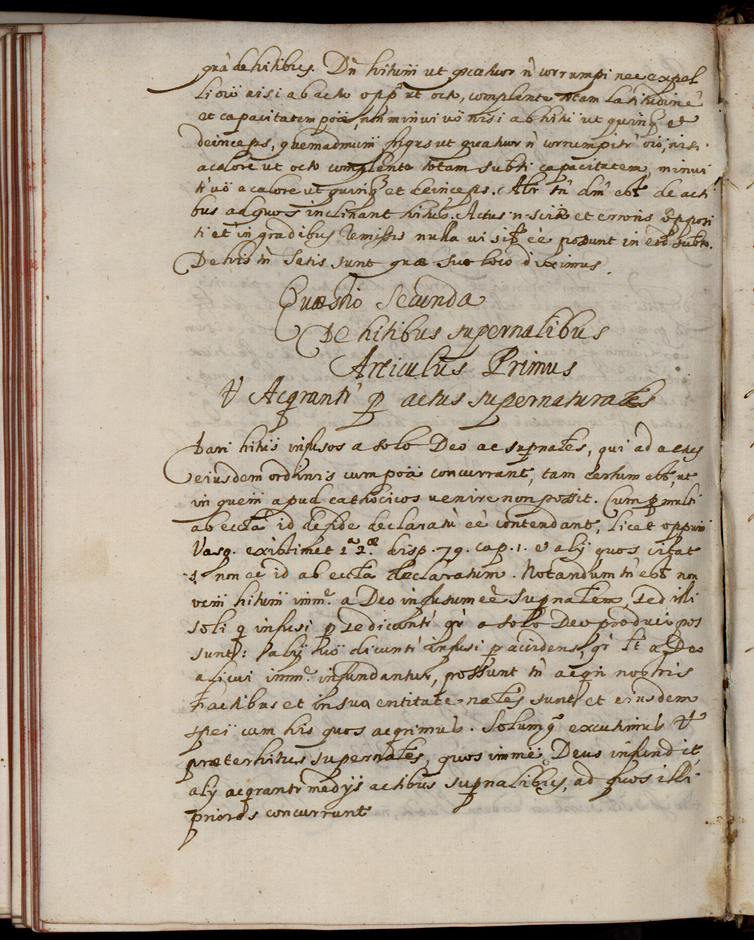 gra de hitibus. Dn hitum ut quatuor n corrumpi nec expel
li oio nisi ab actu opp ut octo, complente totam latitudine
et capacitatem poæ, non minui vo nisi ab hitu ut quinq et
deinceps, quemadmum frigus ut quatuor n corrumpitr oio, nisi
a calore ut octo complente totam subti capacitatem, minui
ti vo a calore ut quinq et deinceps. Alr tn dm est de acti
bus ad quos inclinant hitus. Actus n sciæ et erroris oppori
ti et in gradibus remissis nulla vi sil ee possunt in eod subto.
De his tn satis sunt quæ suo loco diximus.
Quæstio Secunda
De hitibus supernalibus
Articulus Primus
V Acqrantr p actus supernaturales
Dari hitus infusos a solo Deo ac supnales, qui ad actus
eiusdem ordinis cum poa concurrant, tam certum est ut
in quem apud cathocicos venire non possit. Cum p multi
ab eccta id de fide declaratu ee contendant, licet oppum
Vasq. existimet 1ª 2æ. disp. 79. cap. 1. et alij quos citat
non ee id ab eccta declaratum. Notandum tn est non
oem hitum imme. a Deo infusum ee supnalem, sed illi
soli q infusi p se dicuntr qi a solo Deo produci pos
sunt: alij vo dicuntr infusi p accidens, qi lt a Deo
alicui imme. infundantur, possunt tn acqri nostris
actibus et in sua entitate nales sunt et eiusdem
spei cum his quos acqrimus. Solumq excutimus V
præter hitus supernales, quos imme Deus infundit,
alij acqrantr medijs actibus supnalibus, ad quos illi
priores concurrunt